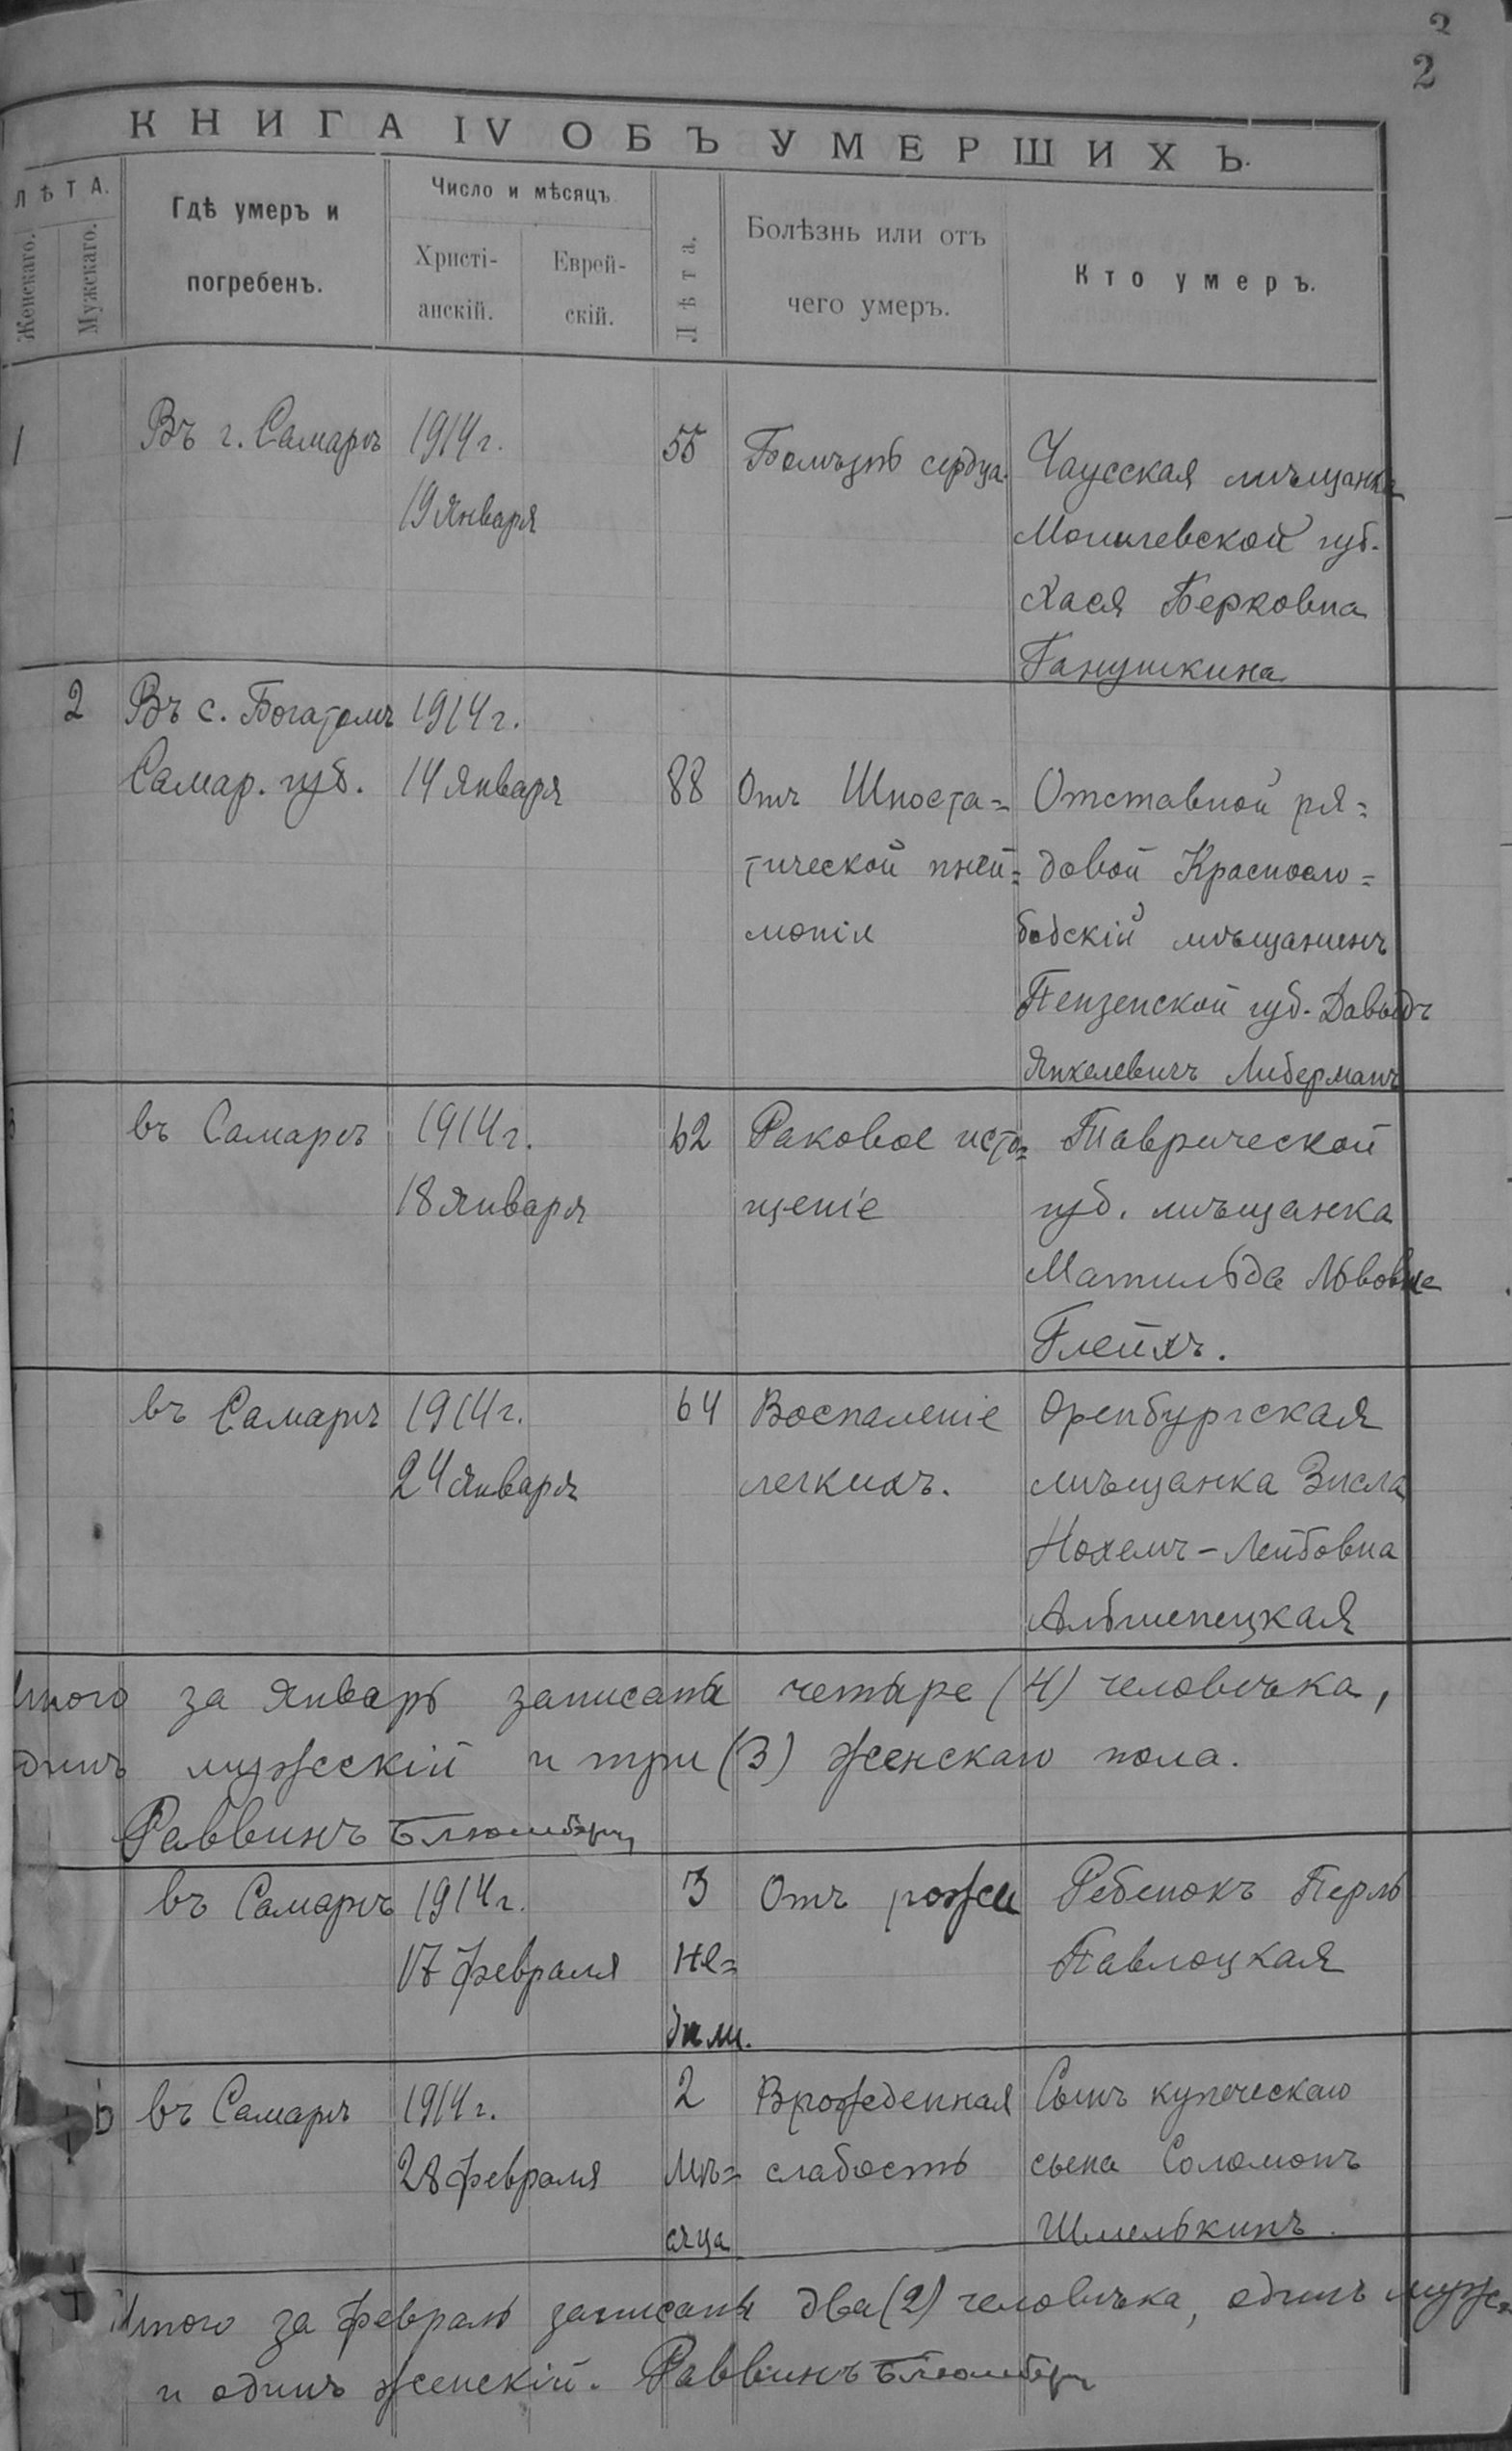 2
2
КНИГА IV ОБЪ УМЕРШИХЪ.
ЛѢТА.
Женскаго.
Мужскаго.
Гдѣ умеръ и
погребенъ.
Число и мѣсяцъ
Христі-
анскій.
Еврей-
скій.
Лѣта.
Болѣзнь или отъ
чего умеръ.
Кто умеръ.
1 Въ г. Самарѣ 1914 г. 55 Болѣзнь сердца. Чаусская мѣщанка
19 Января Могилевской губ.
Хася Берковна
Ганушкина
2 Въ с. Богатомъ 1914 г.
Самар. губ. 14 Января 88 Отъ Ипоста= Отставной ря=
тической пней= довой Краснало=
монія бодскій мѣщанинъ
Пензенской губ. Давыдъ
Янкелевичъ Либерманъ
въ Самарѣ 1914 г. 62 Раковое исто= Таврической
18 Января щеніе губ. мѣщанка
Матильда Львовна
Глейхъ.
въ Самарѣ 1914 г. 64 Воспаленіе Оренбургская
24 Января легкихъ. мѣщанка Зисла
Нохемъ-Лейбовна
Итого за Январь записаны четыре (4) человѣка,
одинъ мужескій и три (3) женскаго пола.
Раввинъ Блюмбергъ
въ Самарѣ 1914 г. 3 Отъ рожи Ребенокъ Перль
17 февраля не= Павлоцкая
дѣли.
въ Самарѣ 1914 г. 2 Врожденная Сынъ купеческаго
28 февраля мѣ= слабость сына Соломонъ
сяца Шмелькинъ.
Итого за февраль записаны два (2) человѣка, одинъ муж.
и одинъ женскій. Раввинъ Блюмбергъ